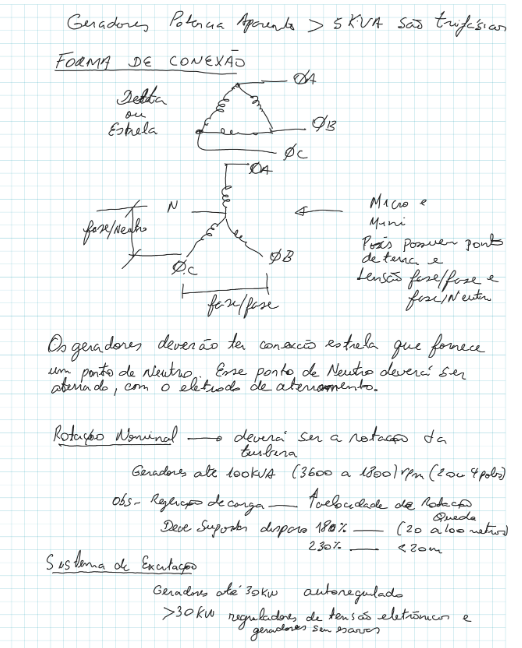 Geradores Potencia Aparente > 5 KVA são trifásicos
FORMA DE CONEXÃO
Delta
ou
Estrela
ØA
ØB
ØC
ØA
N
fase/Neutro
ØC
ØB
fase/fase
Micro e
Mini
Pois possuem ponto
de terra e
tensão fase/fase e
fase/Neutro
Os geradores deverão ter conexão estrela que fornece
um ponto de Neutro. Esse ponto de Neutro deverá ser
aterrado, com o eletrodo de aterramento.
Rotação Nominal → deverá ser a rotação da
turbina
Geradores até 100KVA (3600 a 1800) rpm (2 ou 4 polos)
Obs - Rejeição de carga — ↑ velocidade de Rotação
Queda
Deve Suportar disparo 180% — (20 a 100 metros)
230% — < 20m
Sistema de Excitação
Geradores até 30KW autoregulado
>30KW reguladores de tensão eletrônicos e
geradores sem escovas